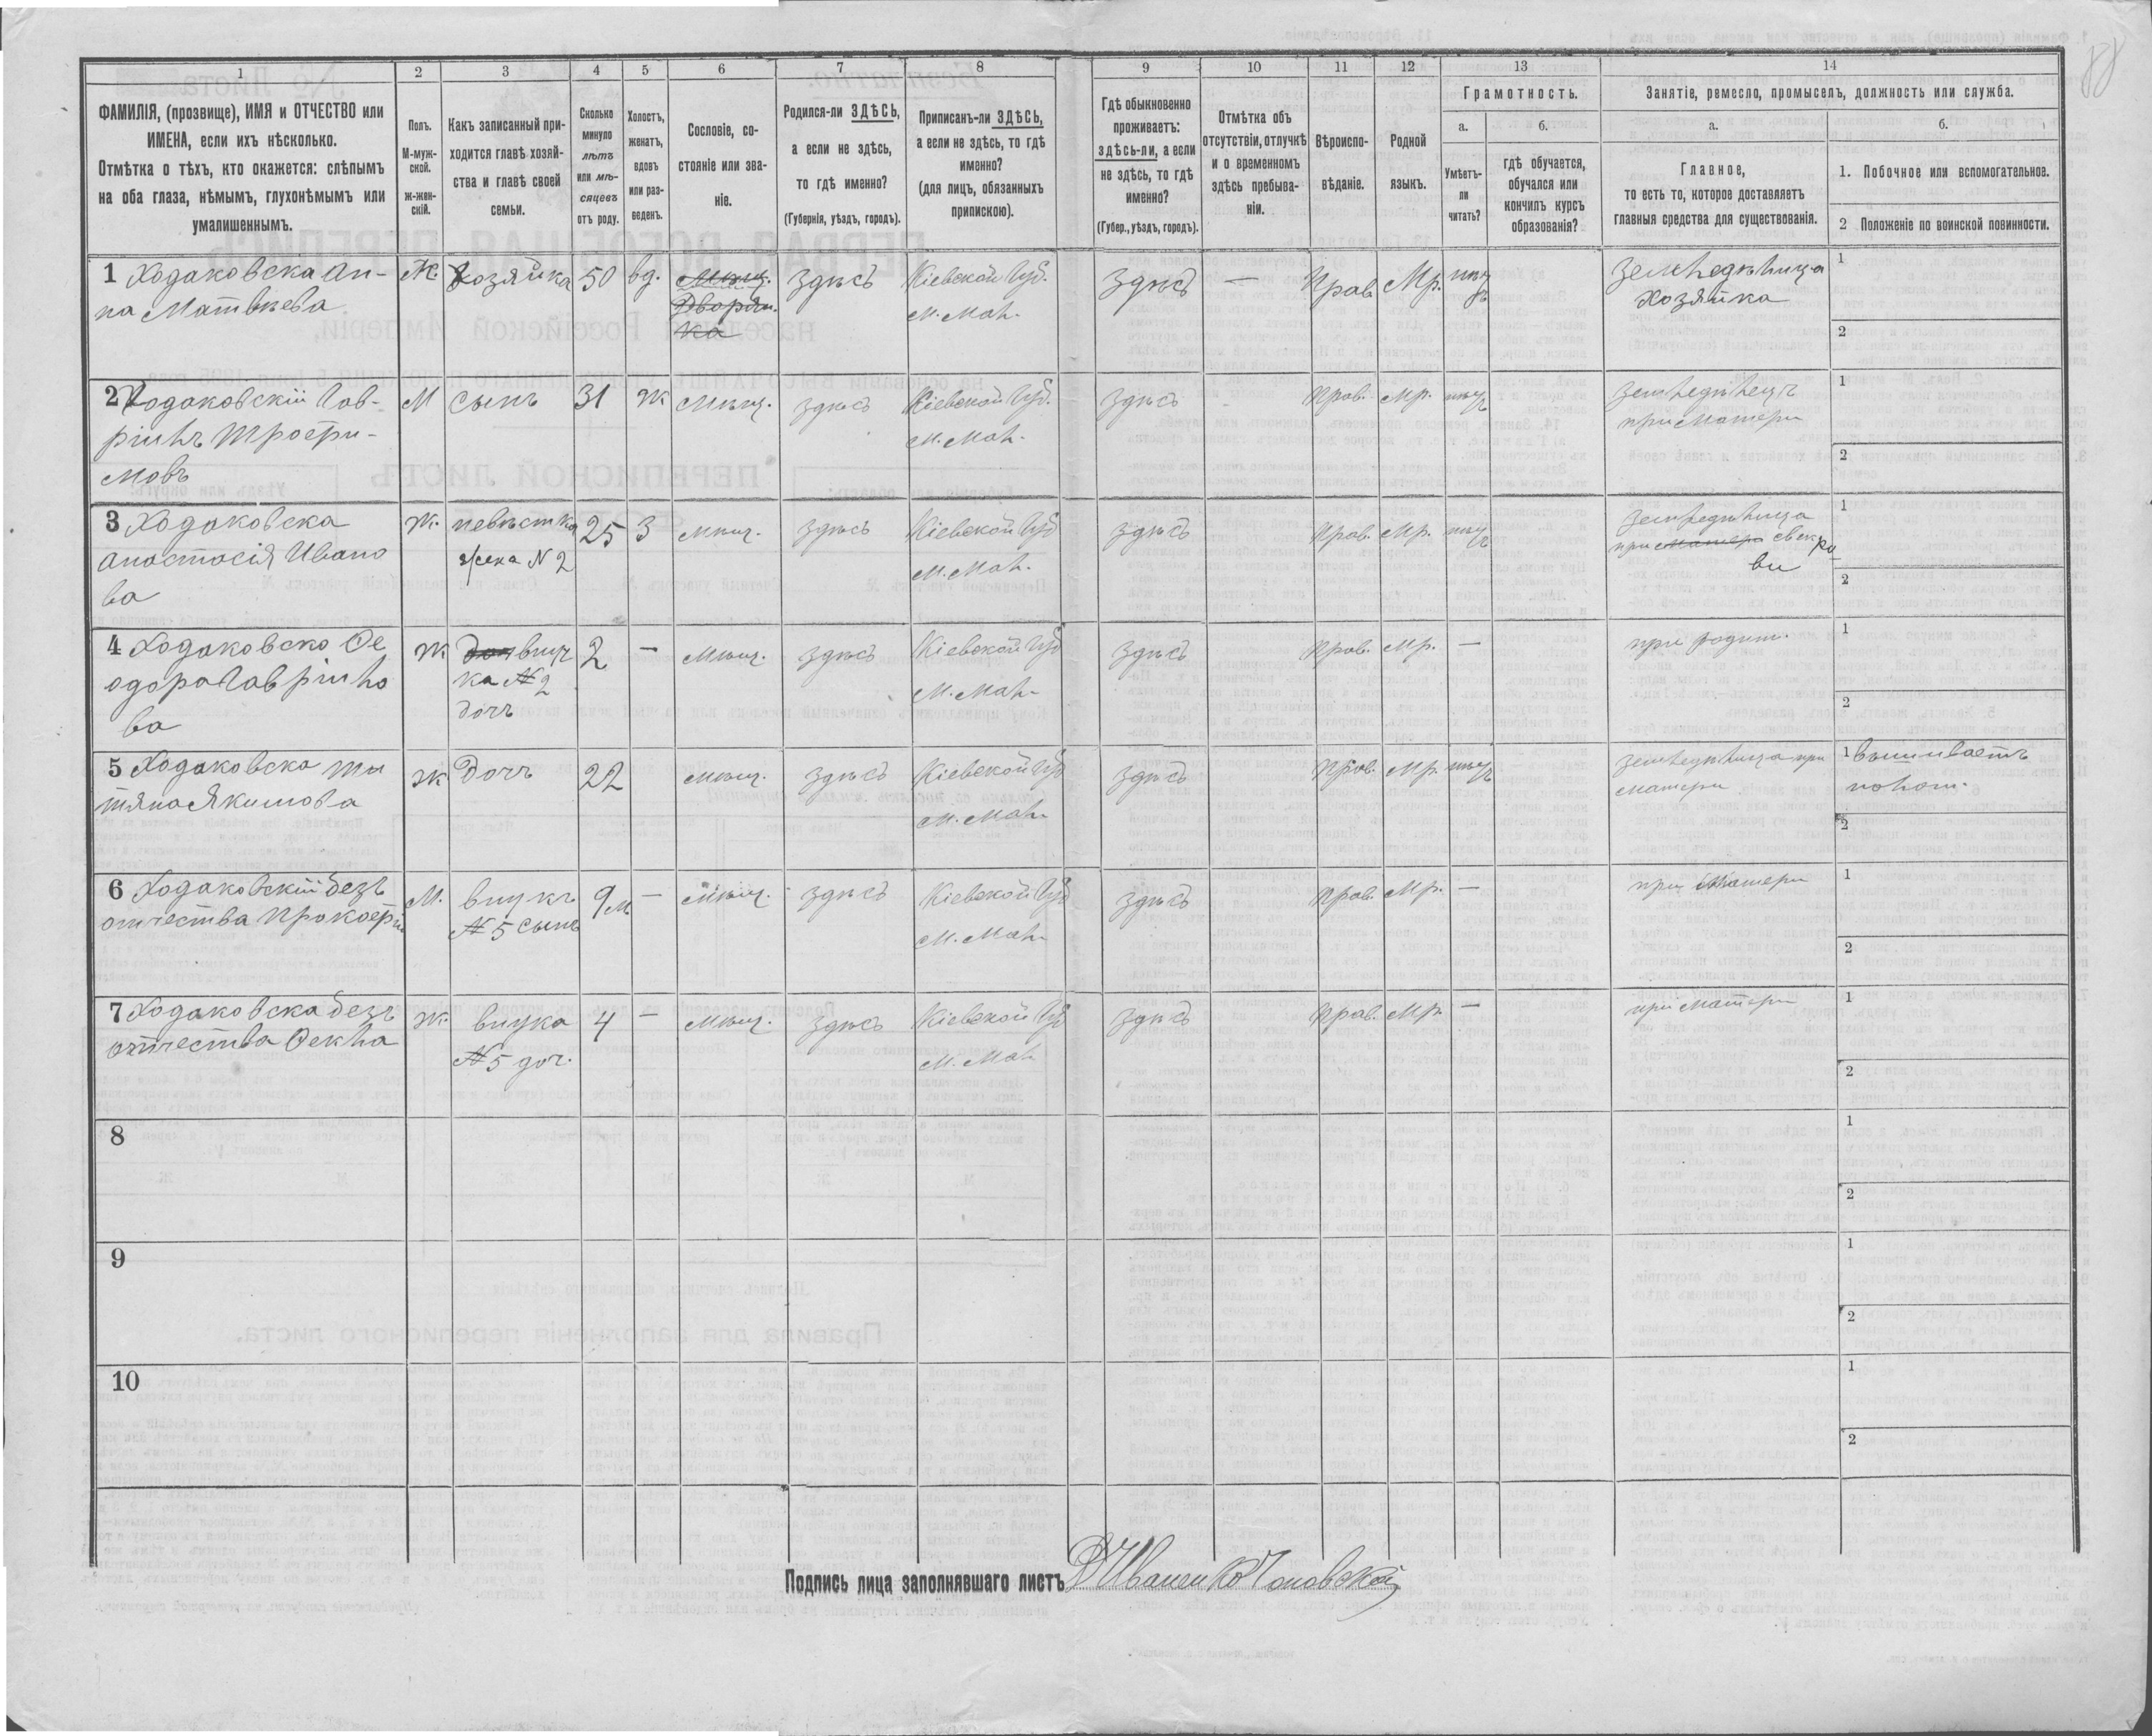 88
1 2 3 4 5 6 7 8 9 10 11 12 13 14
ФАМИЛІЯ, (прозвище), ИМЯ и ОТЧЕСТВО или
ИМЕНА, если ихъ нѣсколько.
Отмѣтка о тѣхъ, кто окажется: слѣпымъ
на оба глаза, нѣмымъ, глухонѣмымъ или
умалишеннымъ.
Полъ.
М-муж-
ской.
ж-жен-
скій.
Какъ записанный при-
ходится главѣ хозяй-
ства и главѣ своей
семьи.
Сколько
минуло
лѣтъ
или мѣ-
сяцевъ
отъ роду.
Холостъ,
женатъ,
вдовъ
или раз-
веденъ.
Сословіе, со-
стояніе или зва-
ніе.
Родился-ли ЗДѢСЬ,
а если не здѣсь,
то гдѣ именно?
(Губернія, уѣздъ, городъ).
Приписанъ-ли ЗДѢСЬ,
а если не здѣсь, то гдѣ
именно?
(для лицъ, обязанныхъ
припискою).
Гдѣ обыкновенно
проживаетъ:
здѣсь-ли, а если
не здѣсь, то гдѣ
именно?
(Губер., уѣздъ, городъ).
Отмѣтка объ
отсутствіи, отлучкѣ
и о временномъ
здѣсь пребыва-
ніи.
Вѣроиспо-
вѣданіе.
Родной
языкъ.
Грамотность.
а.
Умѣетъ-
ли
читать?
б.
гдѣ обучается,
обучался или
кончилъ курсъ
образованія?
Занятіе, ремесло, промыселъ, должность или служба.
а.
Главное,
то есть то, которое доставляетъ
главныя средства для существованія.
б.
1. Побочное или вспомогательное.
2 Положеніе по воинской повинности.
1 Ходаковска Ан-
на Матвѣева
Ж. Хозяйка 50 вд. Мѣщ.
Дворян.
ка
здѣсь Кіевской Губ.
здѣсь — Прав. Мр.
Земледѣлица
хозяйка
1
2
2 Ходаковскій Гав-
ріилъ Трофи-
мовъ
М сынъ 31 ж Мѣщ. здѣсь Кіевской Губ.
здѣсь Прав. Мр.
земледѣлецъ
при матери
1
2
3 Ходаковска
Анастасія Ивано
ва
Ж. невѣстка
жена N 2
25 З мѣщ. здѣсь Кіевской Губ
здѣсь Прав. Мр.
земледѣлица
при матери свекро
ви
1
2
4 Ходаковска Ѳе
одора Гавріило
ва
Ж внуч
ка № 2
дочь
2 — мѣщ. здѣсь Кіевской Губ
здѣсь Прав. Мр. —
при родит.
1
2
5 Ходаковска Та
тяна Якимова
ж дочь 22 мѣщ. здѣсь Кіевской Губ
здѣсь Прав. Мр.
земледѣлица при
матери
1 вышиваетъ
2
6 Ходаковскій безъ
отчества Прокофій
М. внукъ
№ 5 сынъ
9 м — мѣщ. здѣсь Кіевской Губ
здѣсь Прав. Мр. —
при матери
1
2
7 Ходаковска безъ
отчества Ѳекла
Ж. внука
№ 5 доч.
4 — мѣщ. здѣсь Кіевской Губ
здѣсь Прав. Мр. —
при матери
1
2
8
1
2
9
1
2
10
1
2
Подпись лица заполнявшаго листъ